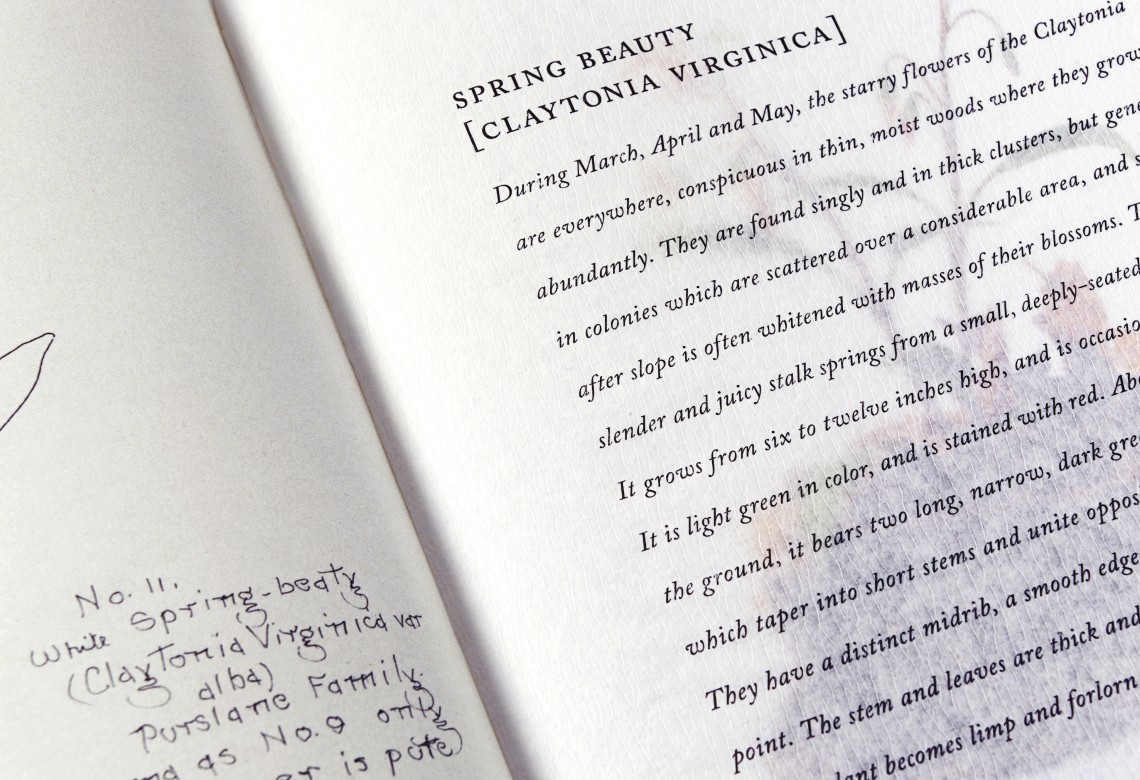 No. 11.
White Spring-beaty
(Claytonia Virginica var
alba)
Purslane Family.
as No. 9 only
is pure)
SPRING BEAUTY
[CLAYTONIA VIRGINICA]
During March, April and May, the starry flowers of the Claytonia
are everywhere, conspicuous in thin, moist woods where they grow
abundantly. They are found singly and in thick clusters, but
in colonies which are scattered over a considerable area, and
after slope is often whitened with masses of their blossoms.
slender and juicy stalk springs from a small, deeply-seated
It grows from six to twelve inches high, and is
It is light green in color, and is stained with red.
the ground, it bears two long, narrow, dark
which taper into short stems and unite
They have a distinct midrib, a smooth edge
point. The stem and leaves are thick and
becomes limp and forlorn